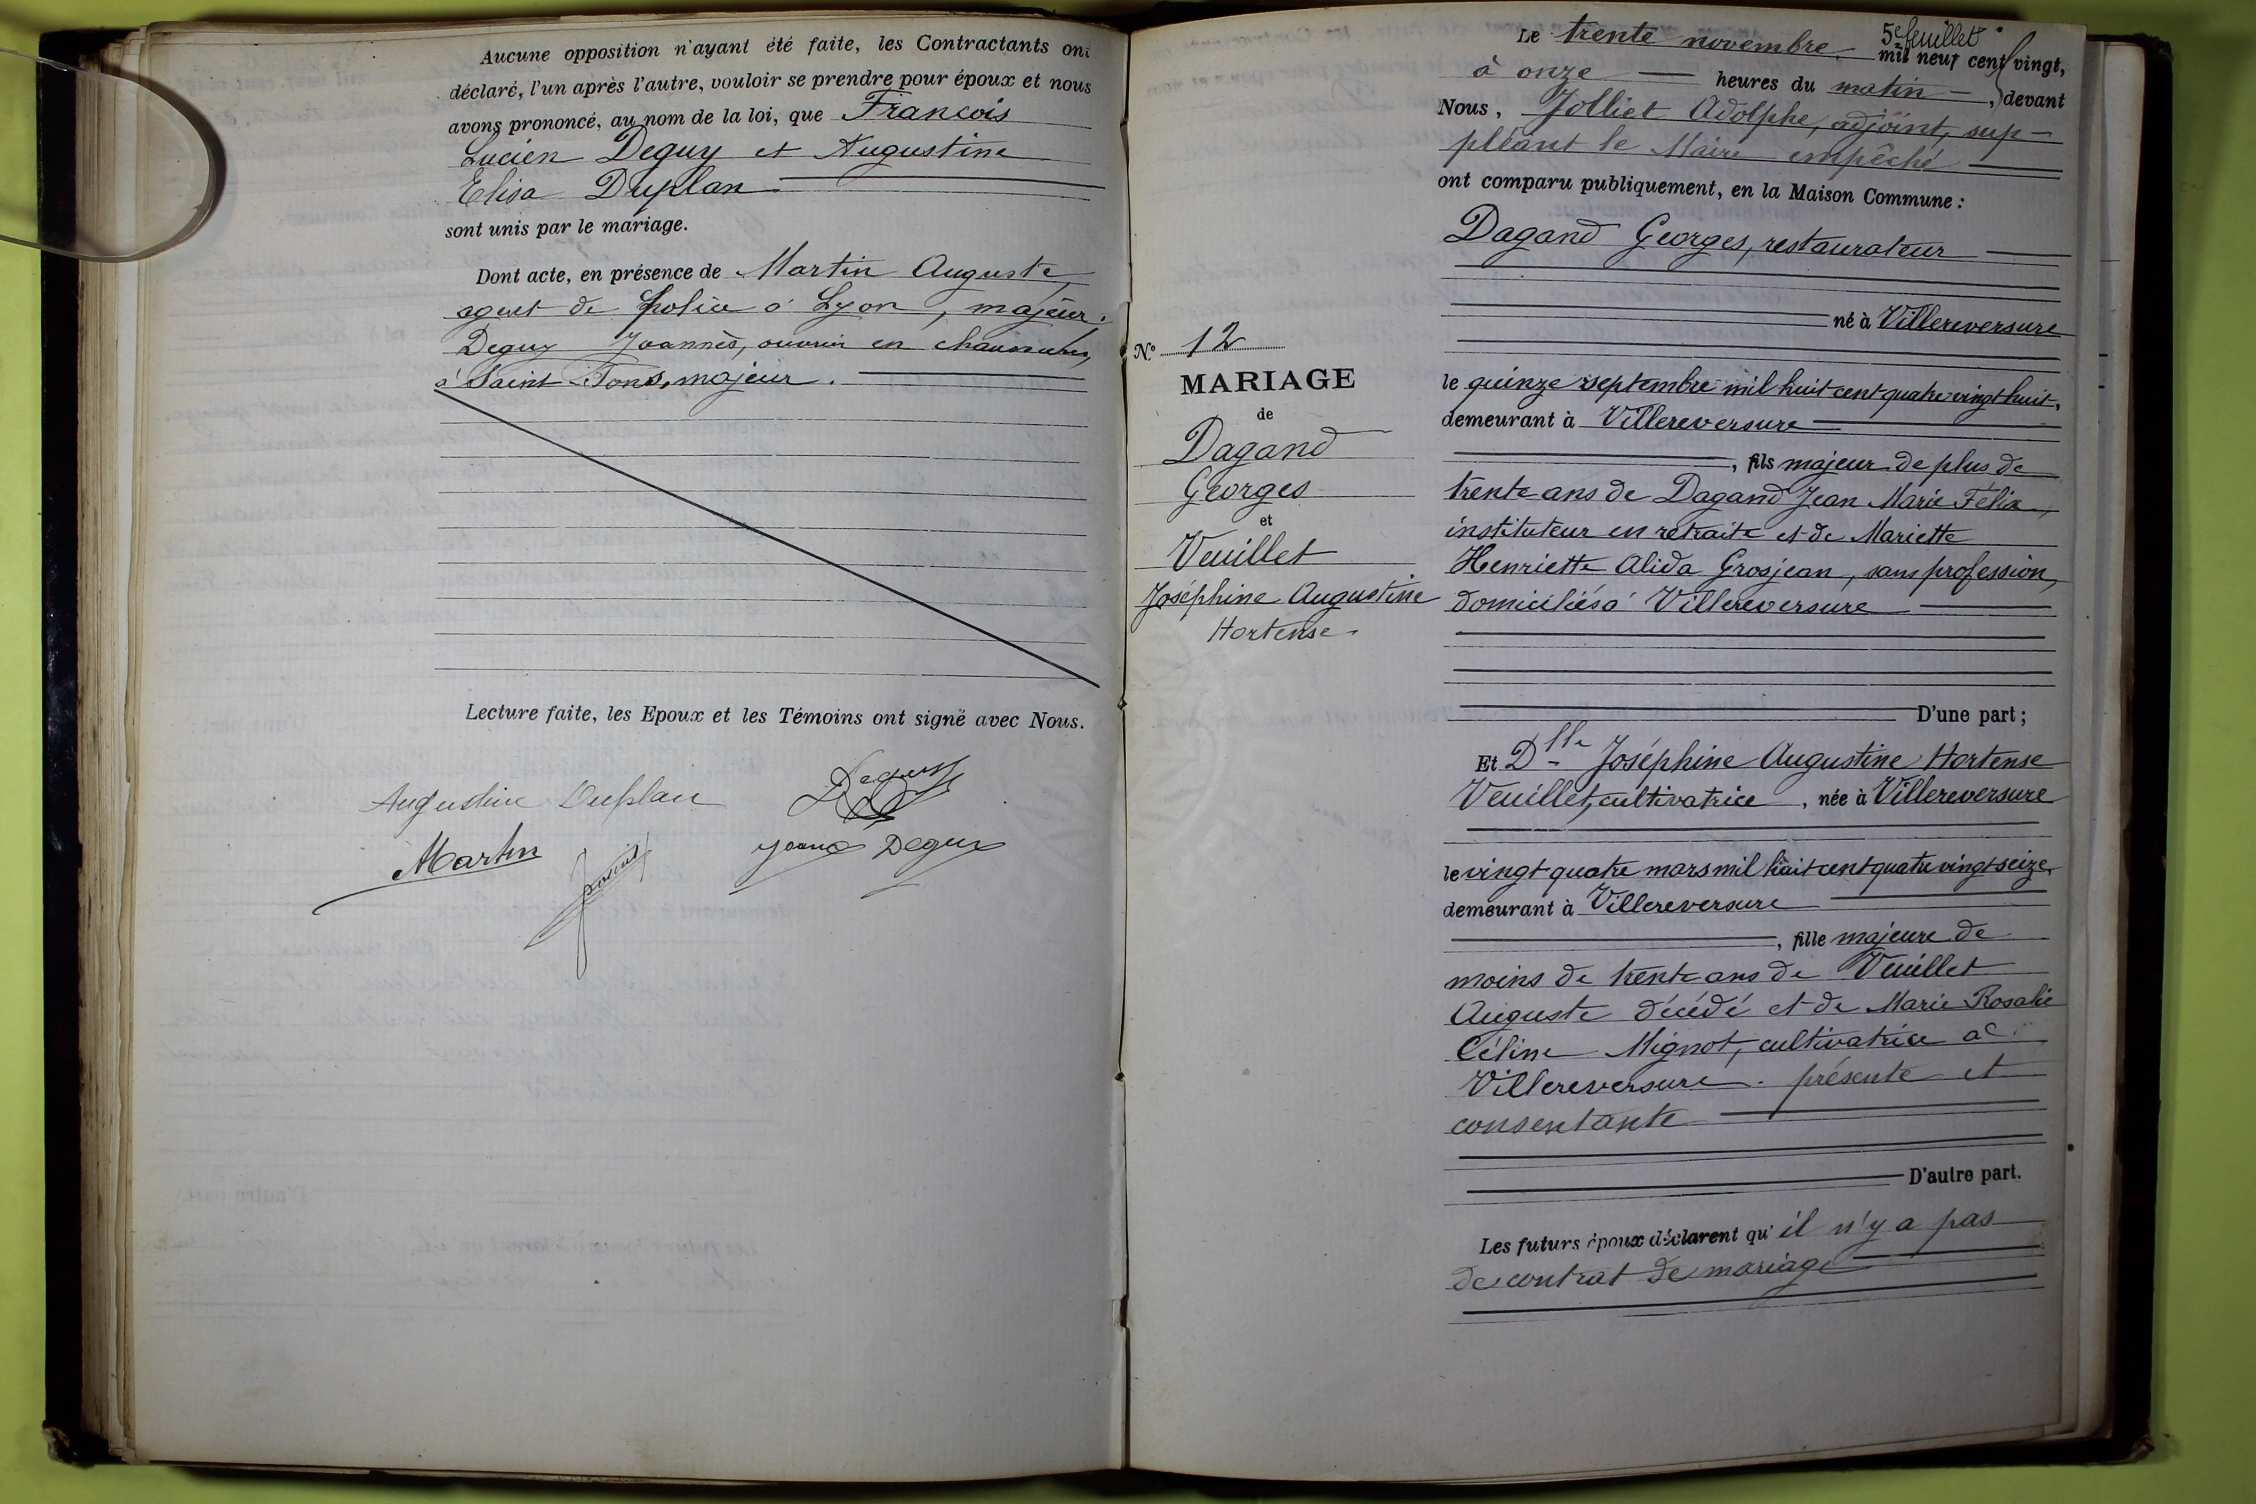 Aucune opposition n'ayant été faite, les Contractants ont
déclaré, l'un après l'autre, vouloir se prendre pour époux et nous
avons prononcé, au nom de la loi, que François
Lucien Deguy et Augustine
Elisa Duplan
sont unis par le mariage.
Dont acte, en présence de Martin Auguste,
agent de police à Lyon, majeur.
Deguy Joannès, ouvrier en chaussures,
à Saint-Fons, majeur.
Lecture faite, les Epoux et les Témoins ont signé avec Nous.
Augustine Duplan Deguy
Martin Deguy
5e feuillet
Le trente novembre mil neuf cent vingt,
à onze heures du matin, devant
Nous, Jolliet Adolphe, adjoint, sup-
pléant le Maire empêché
ont comparu publiquement, en la Maison Commune :
Dagand Georges, restaurateur
né à Villereversure
le quinze septembre mil huit cent quatre vingt huit,
demeurant à Villereversure
, fils majeur de plus de
trente ans de Dagand Jean Marie Félix,
instituteur en retraite et de Mariette
Henriette Alida Grosjean, sans profession,
domiciliés à Villereversure
D'une part ;
N° 12
MARIAGE
de
Dagand
Georges
et
Veuillet
Joséphine Augustine
Hortense
Et Dlle Joséphine Augustine Hortense
Veuillet, cultivatrice, née à Villereversure
le vingt quatre mars mil huit cent quatre vingt seize,
demeurant à Villereversure
, fille majeure de
moins de trente ans de Veuillet
Auguste décédé et de Marie Rosalie
Céline Mignot, cultivatrice à
Villereversure. présente et
consentante
D'autre part.
Les futurs époux déclarent qu'il n'y a pas
de contrat de mariage